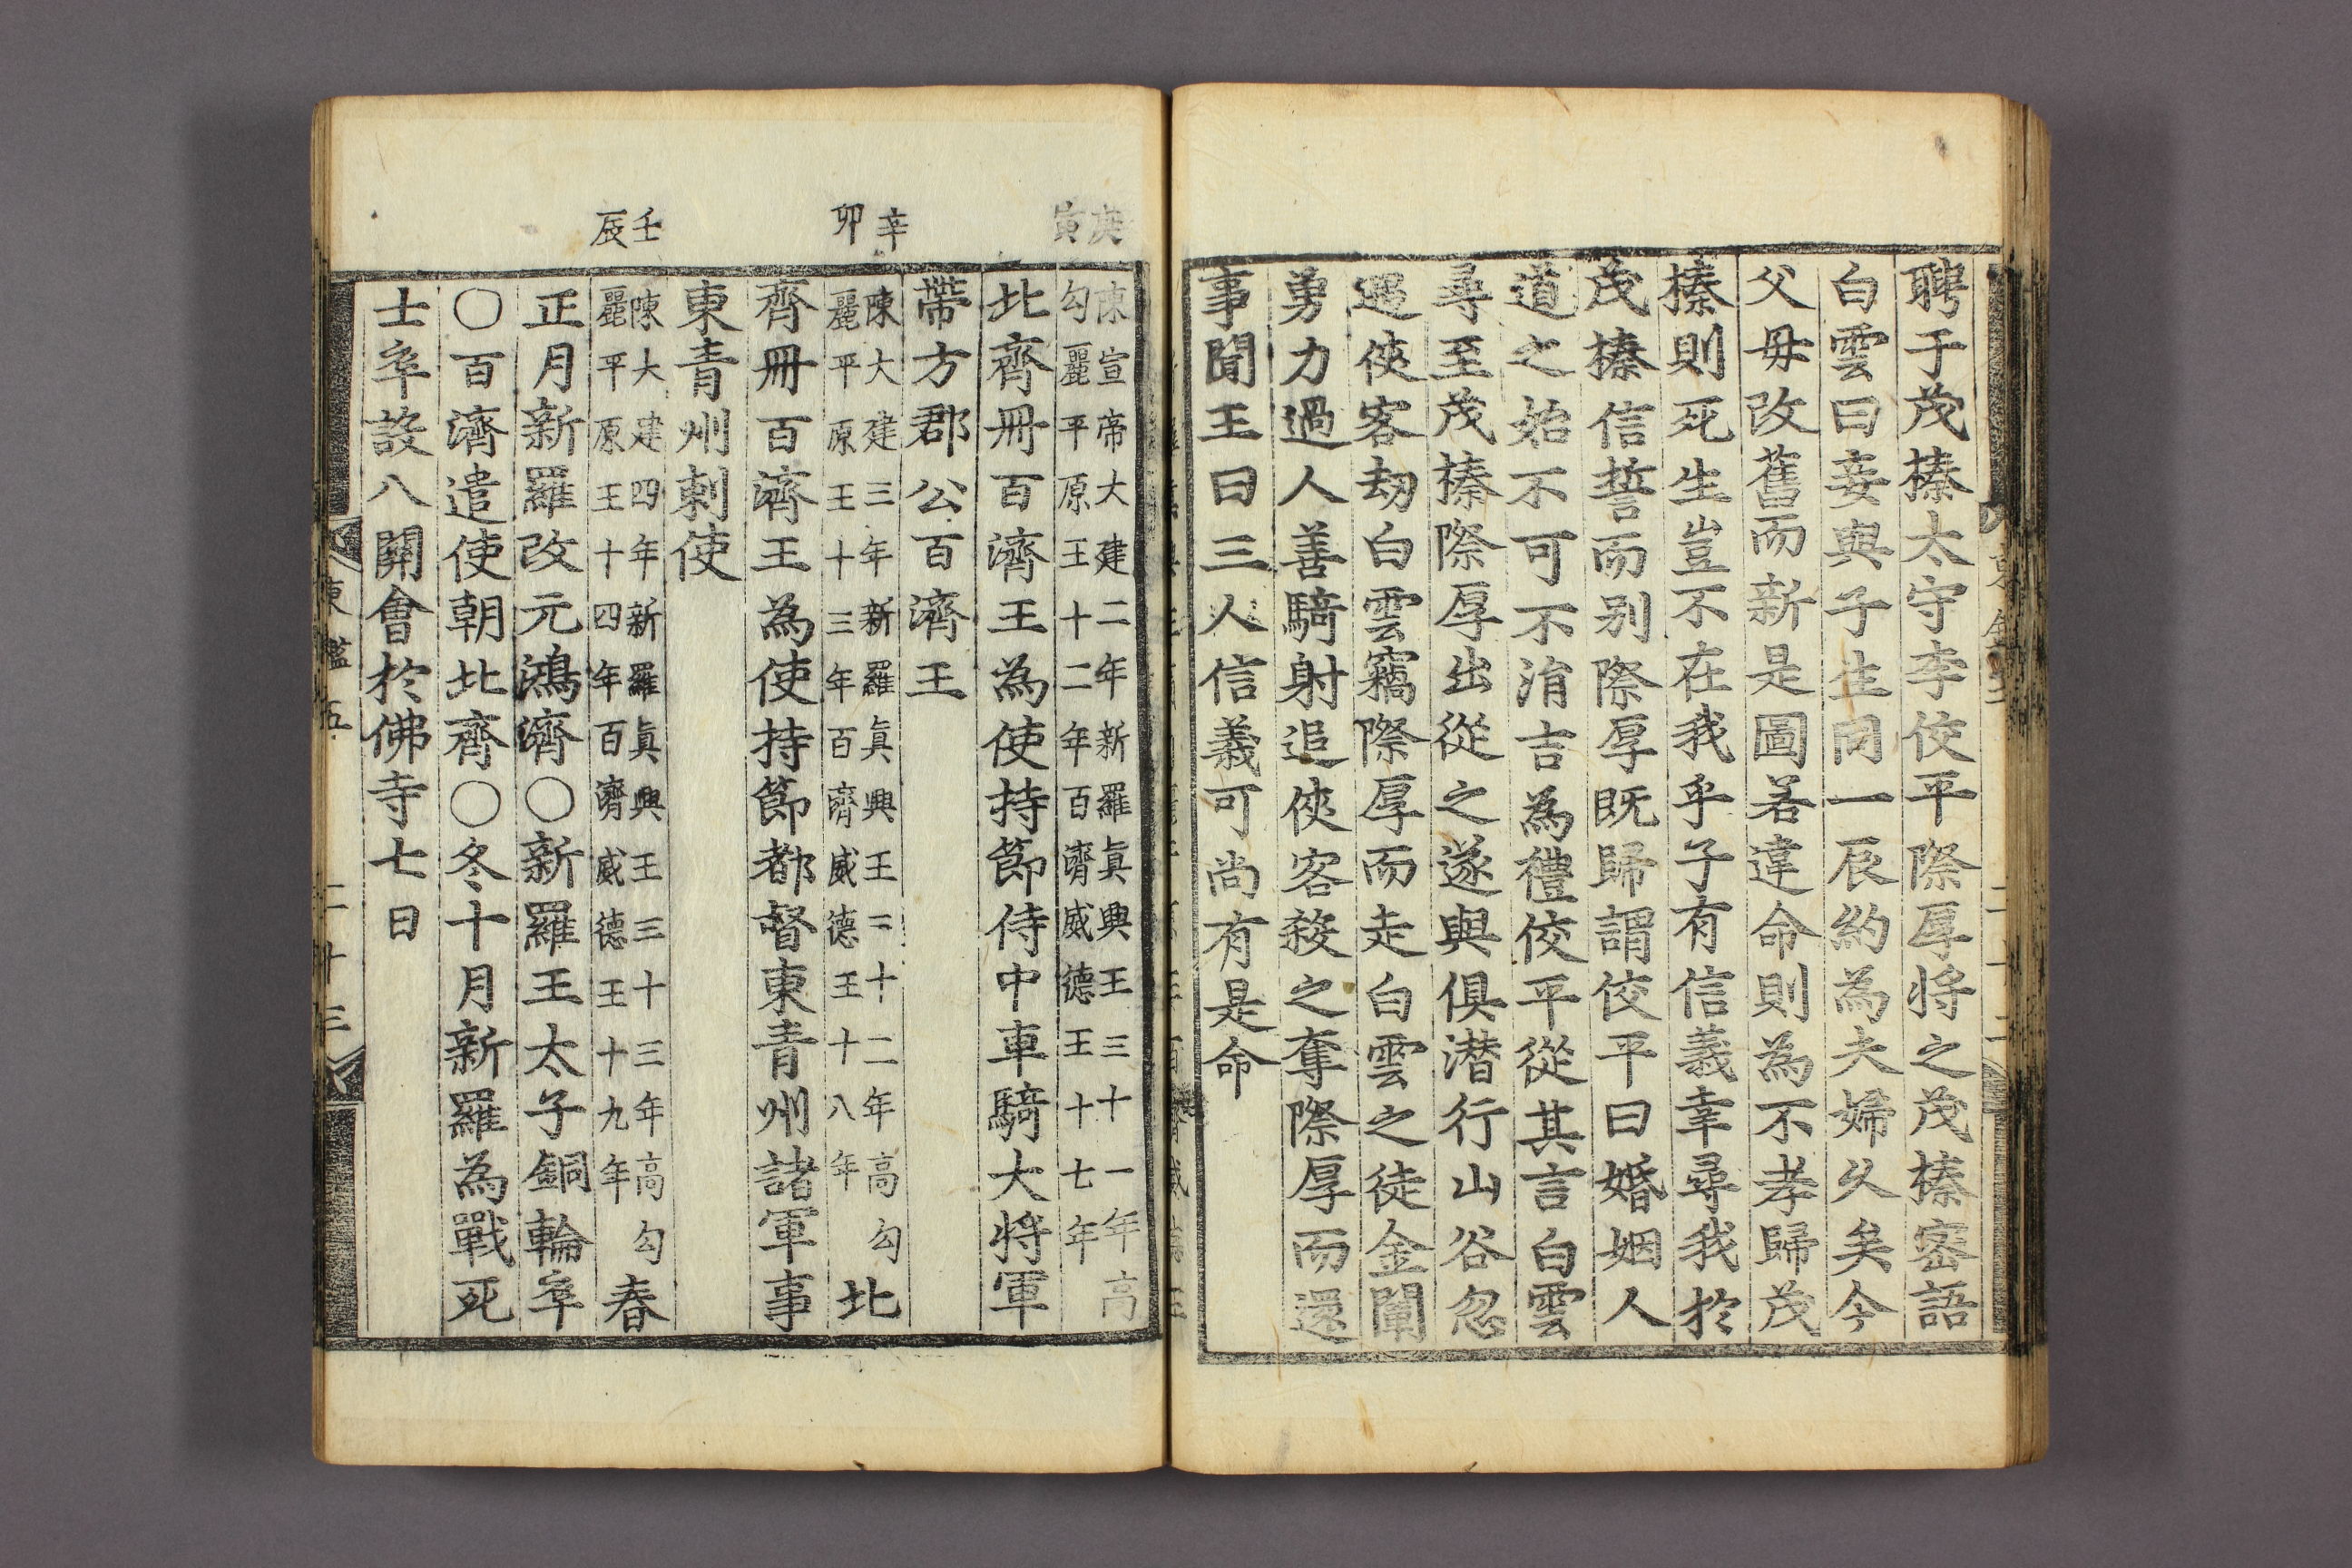 聘于茂榛太守李佼平際厚將之茂榛密語
白雲曰妾與子生同一辰約為夫婦久矣今
父毋改舊而新是圖若違命則為不孝歸茂
榛則死生豈不在我乎子有信義幸尋我於
茂榛信誓而别際厚既歸謂佼平曰婚姻人
道之始不可不消吉為禮佼平從其言白雲
尋至茂榛際厚出從之遂與俱潜行山谷忽
遇俠客劫白雲竊際厚而走白雲之徒金闡
勇力過人善騎射追俠客殺之奪際厚而還
事聞王曰三人信義可尚有是命
庚寅
陳宣帝大建二年新羅眞興王三十一年高
勾麗平原王十二年百濟威德王十七年
北齊冊百濟王為使持節侍中車騎大將軍
帶方郡公百濟王
辛卯
陳大建三年新羅眞興王三十二年高勾
麗平原王十三年百濟威德王十八年
北
齊冊百濟王為使持節都督東青州諸軍事
東青州刺史
壬辰
陳大建四年新羅眞興王三十三年高勾
麗平原王十四年百濟威德王十九年
春
正月新羅改元鴻濟○新羅王太子銅輪卒
○百濟遣使朝北齊○冬十月新羅為戰死
士卒設八關會於佛寺七日
東鑑五
二十三